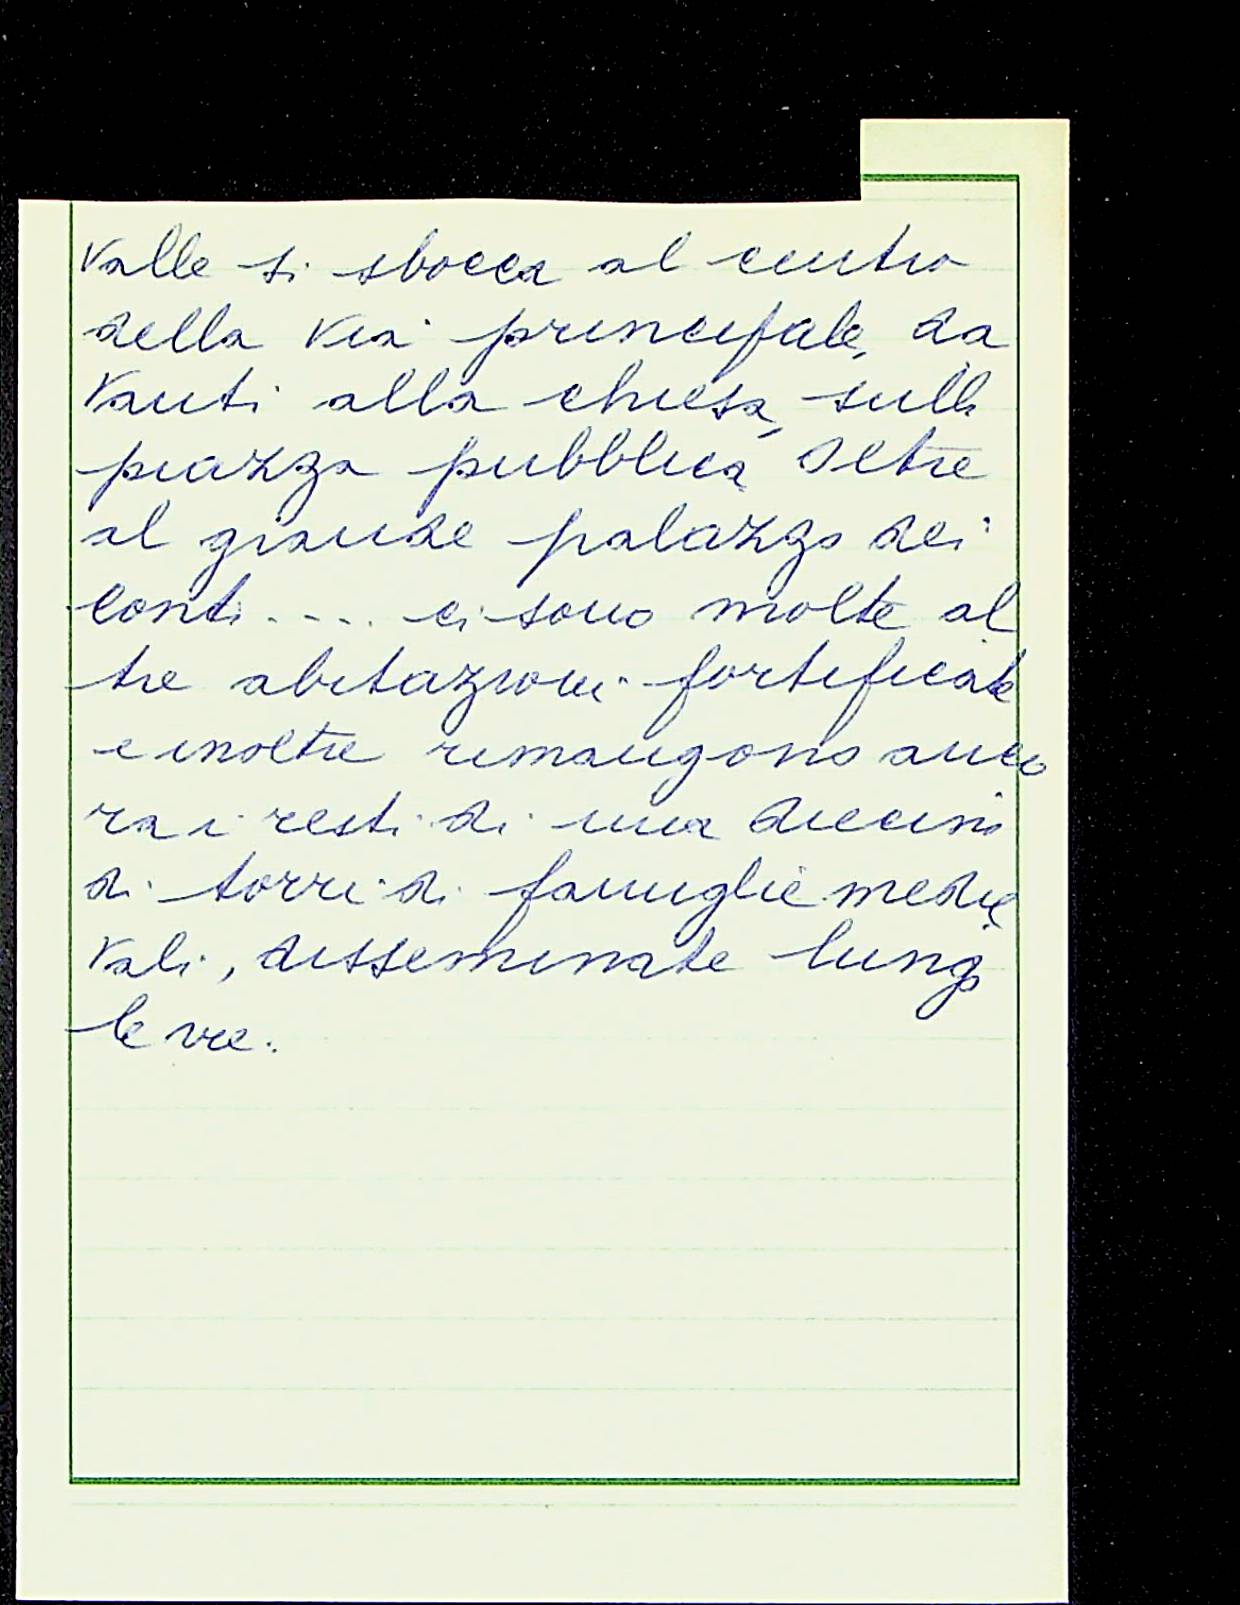 Valle si sbocca al centro
della via principale, da
vanti alla chiesa, sulla
piazza pubblica, oltre
al grande palazzo dei
conti .... ci sono molte al
tre abitazioni fortificate
e inoltre rimangono anco
ra i resti di una diecina
di torri di famiglie medie
vali, disseminate lungo
le vie.